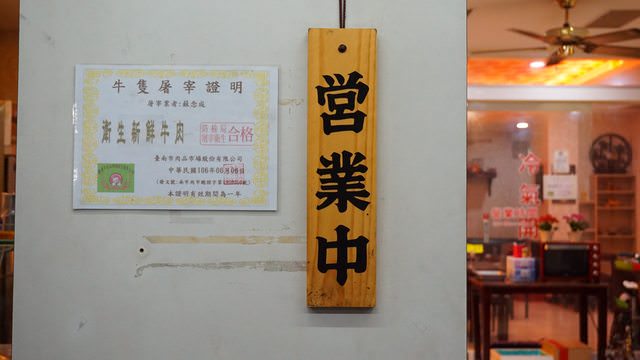 牛隻屠宰證明
屠宰業者:蘇念處
衛生新鮮牛肉
防檢局
屠宰衛生
合格
臺南市肉品市場股份有限公司
中華民國106年06月06日
本證明有效期間為一年
営業中
冷氣開
營業時間